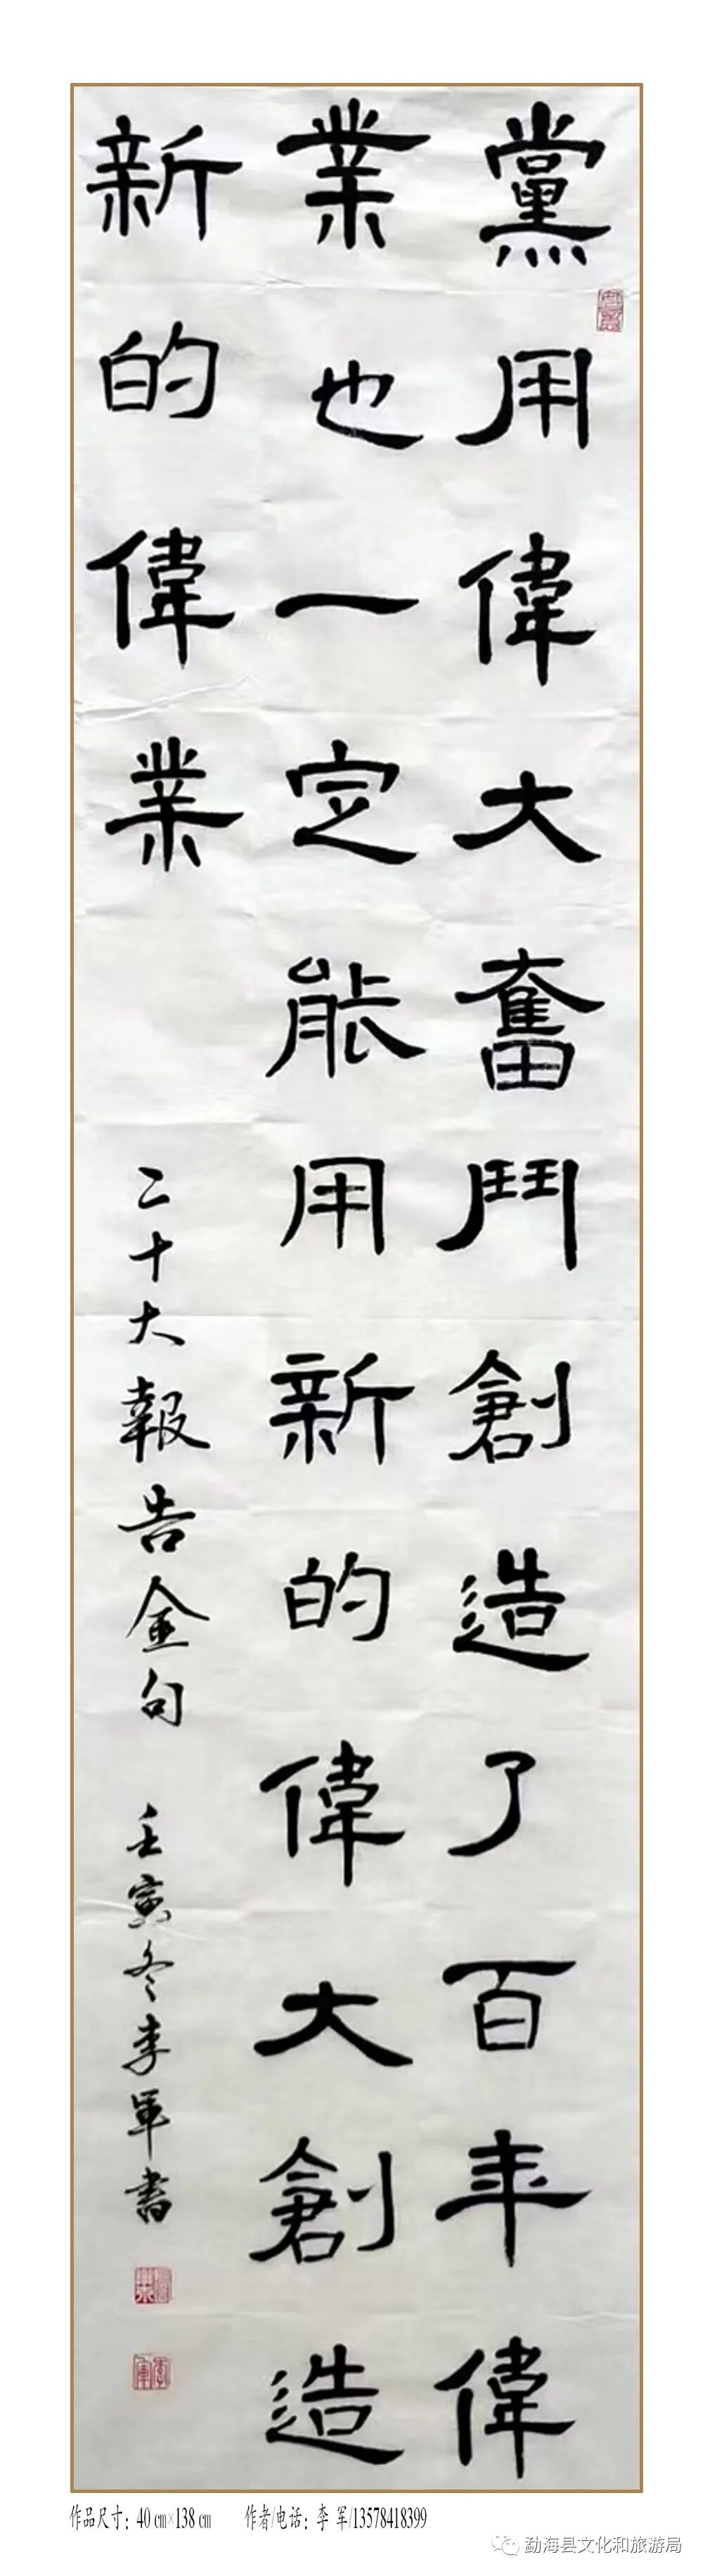 黨用偉大奮鬥創造了百年偉
業也一定能用新的偉大創造
新的偉業
二十大報告金句 壬寅冬李軍書
李軍
作品尺寸：40 cm×138 cm 作者/电话：李 军/13578418399
勐海县文化和旅游局